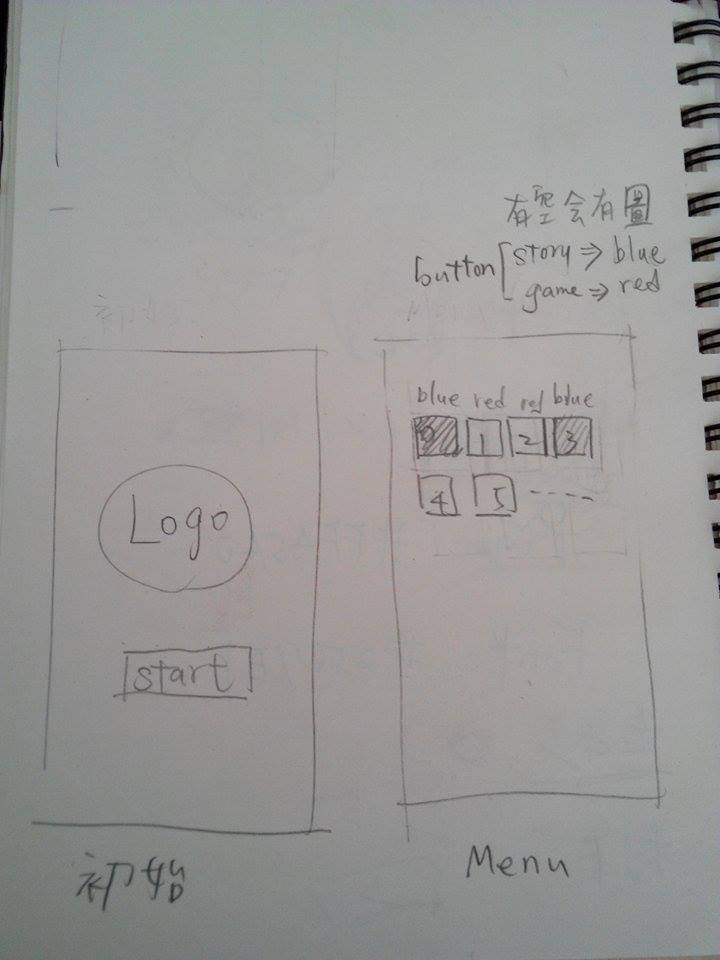 有空会有圖
button [ story ⇒ blue
game ⇒ red
Logo
start
初始
blue red red blue
0 1 2 3
4 5 ----
Menu